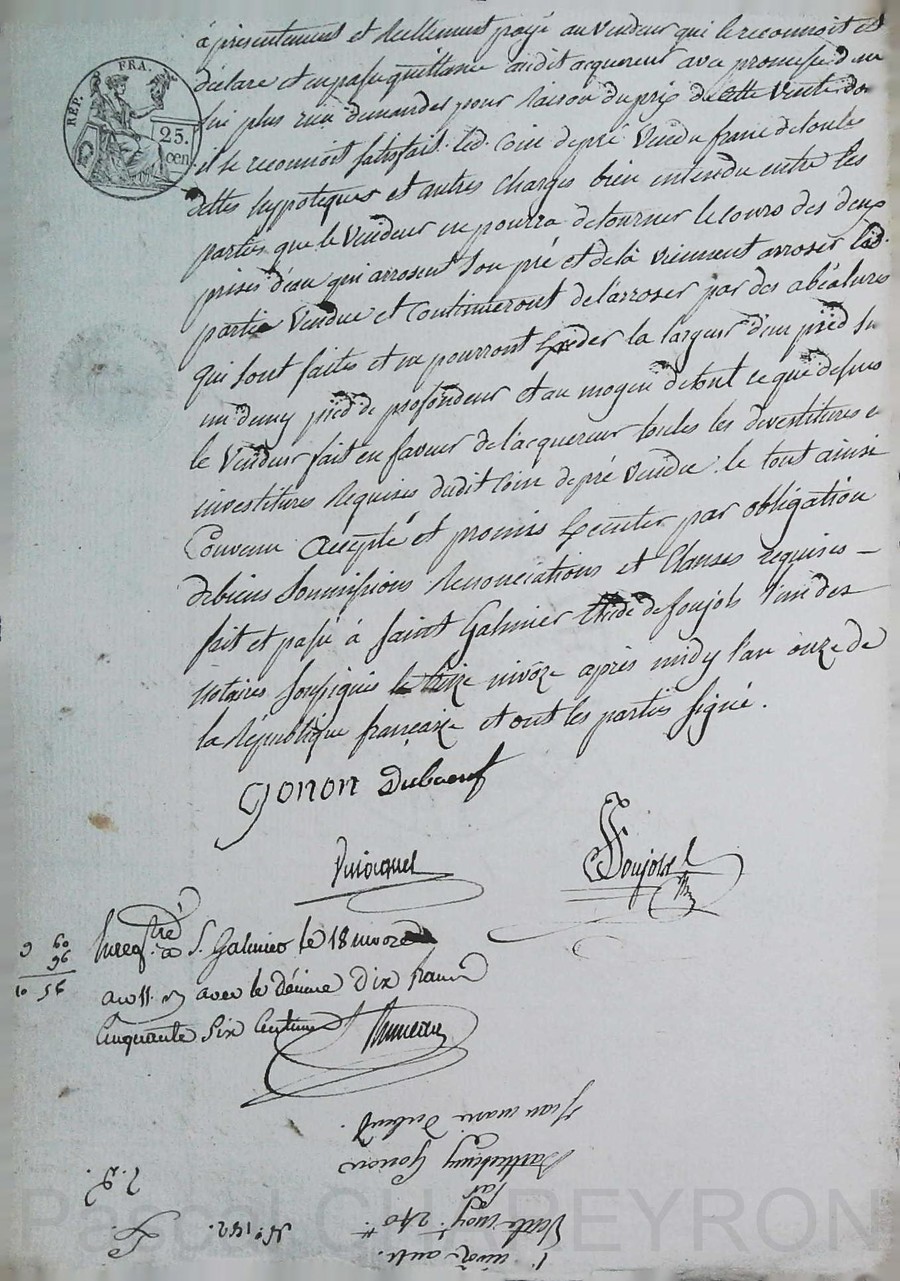 REP. FRA.
25.
cen
à présentement et réellement payé au Vendeur qui le reconnoit et
déclare et en passe quittance audit acquereur avec promesse d'en
lui plus rien demander pour raison du prix de cette Vente don
il se reconnoit satisfait. led. Coin de pré Vendu franc de toutes
dettes hypoteques et autres Charges bien entendu entre les
parties que le Vendeur ne pourra detourner le cours des deux
prises d'eau qui arrosent son pré et de là viennent arroser lad.
partie Vendue et Continueront de l'arroser par des abéalures
qui sont faites et ne pourront Exceder la largeur d'un pied su
un demy pied de profondeur et au moyen de tout ce que dessus
le Vendeur fait en faveur de l'acquereur toutes les devestitures e
investitures Requises dudit Coin de pré Vendu. le tout ainsi
Convenu Accepté et promis Executer par obligation
de biens Soumissions Renonciations et Clauses requises —
fait et passé à Saint Galmier Etude de Soujols l'un des
Notaires Soussignés le nivoze après midy l'an onze de
la République française et ont les parties signé.
Gonon Duboeuf
Soujols
Enregtré à S. Galmier le 18 nivose
9 60
96
10 56
an 11. avec le décime Dix francs
Cinquante Six Centimes
Jean marie
Barthelemy Gonon
par
Vente moyt. 240 tt
1 nivoze an 11.
N° 192.
Pascal CHAPEYRON